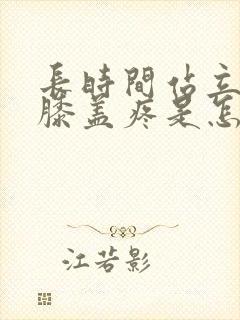 長時間佔立
膝盖疼是怎
江若影